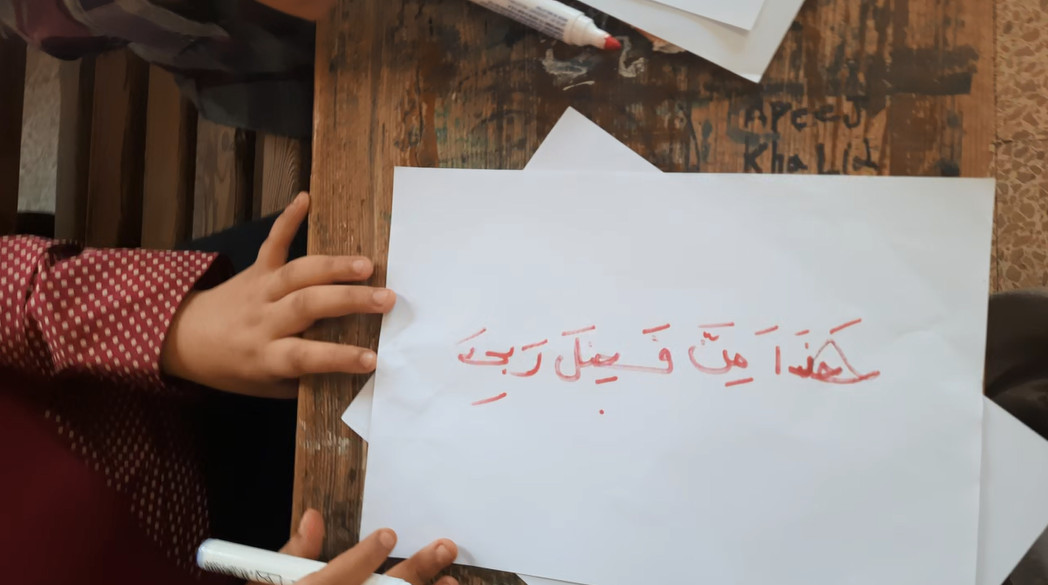 AreeJ
Khalid
هَذَا مِنَّ فَضِلَ رَبِي